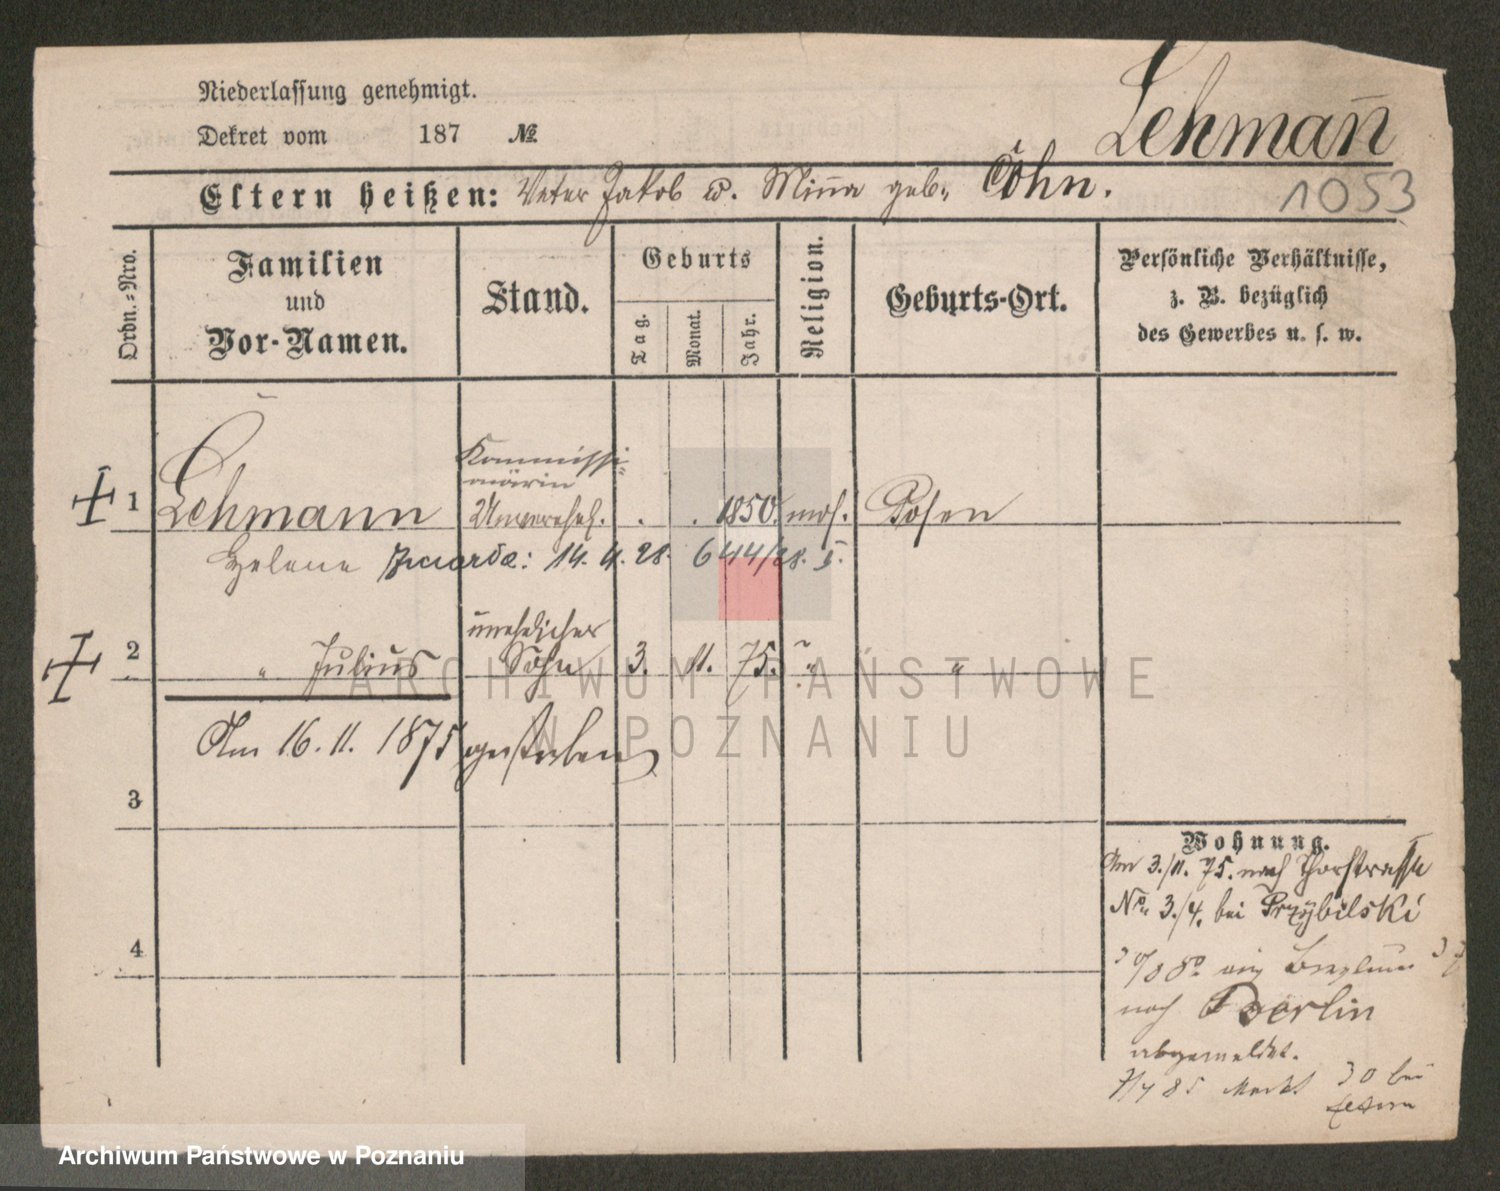 Niederlassung genehmigt.
Dekret vom 187 №
Lehmann
Eltern heißen: Vater Jakob u. Minna geb. Cohn.
1053
Ordn.-Nro.
Familien
und
Vor-Namen.
Stand.
Geburts
Tag.
Monat.
Jahr.
Religion.
Geburts-Ort.
Persönliche Verhältnisse,
z. B. bezüglich
des Gewerbes u. s. w.
Kommissi-
onärin
1 Lehmann Unverehel. . . 1850. mos. Posen
Helene 14. 4. 28. 644/28. I.
unehelicher
2 " Julius Sohn 3. 11. 75. " "
Am 16. 11. 1875 gestorben
3
4
Wohnung.
Am 3./11. 75. nach Thorstrasse
No. 3./4. bei Przybilski
nach Berlin
abgemeldet.
85 Markt 30 bei
ARCHIWUM PAŃSTWOWE
W POZNANIU
Archiwum Państwowe w Poznaniu